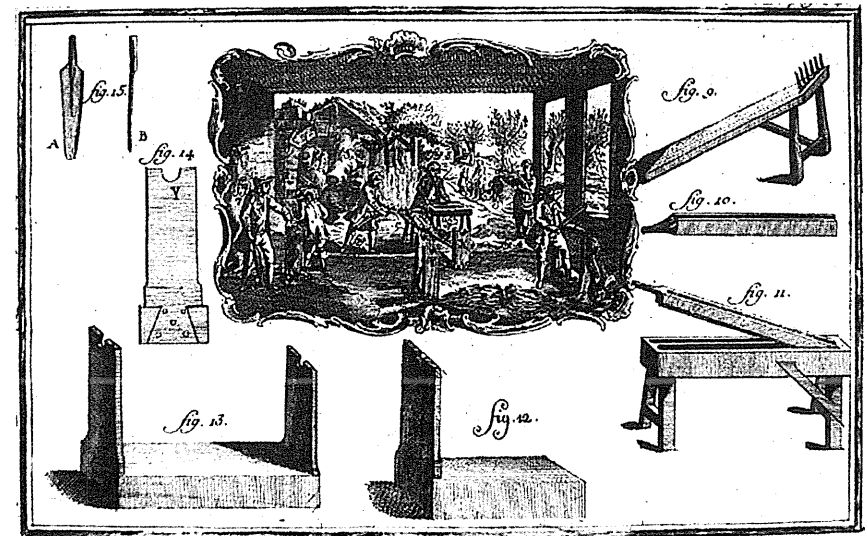 fig. 15.
A
B
fig. 14
Y
fig. 9.
fig. 10.
fig. 11.
fig. 13.
fig. 12.